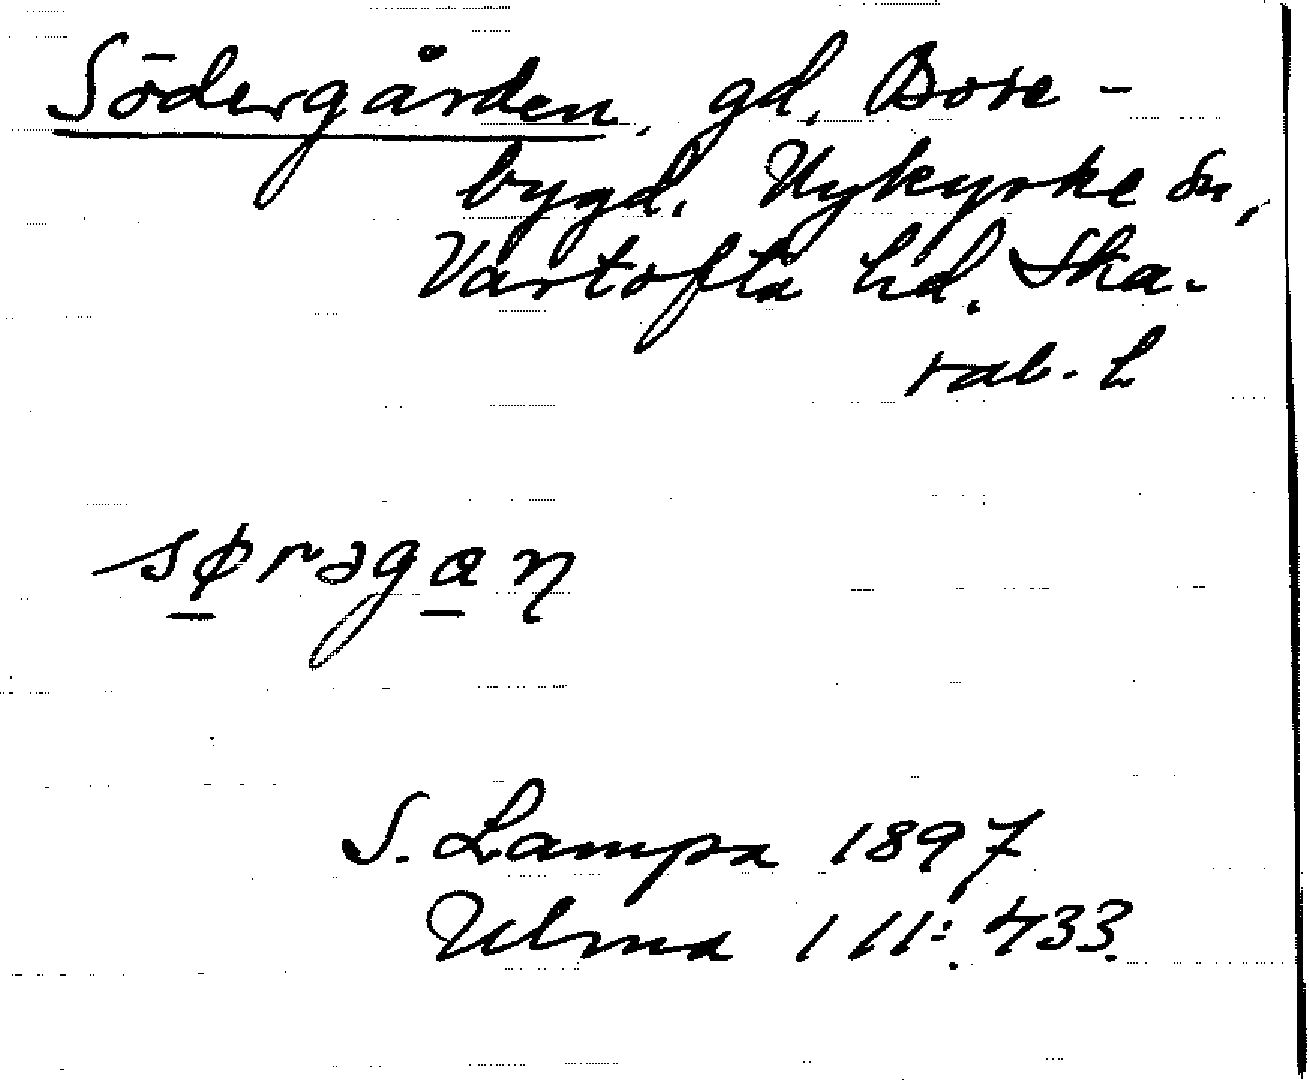 Södergården, gd. Bore-
bygd. Nykyrke sn,
Vartofta hd. Ska-
rab. L
sørəgɑn
S. Lampa 1897
Ulma 111:433.